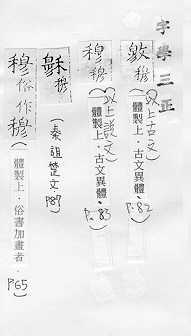 字學三正
敫穆(以上古文)(體製上.古文異體.P.82)
穆穆(以上說文)(體製上.古文異體.P.83)
龢穆(秦詛楚文.P87)
穆俗作穆(體製上.俗書加畫者.P65)